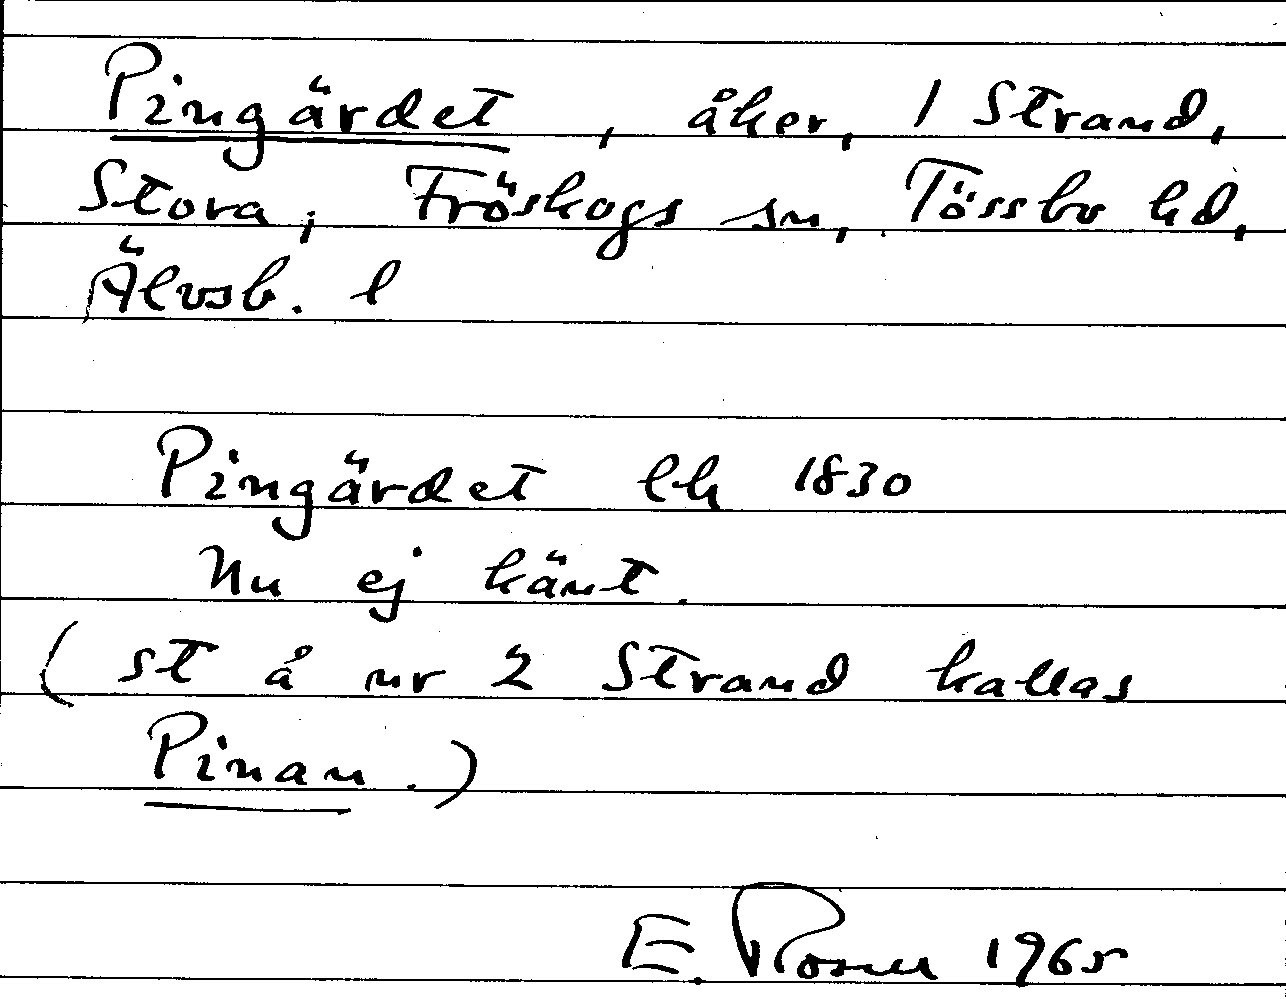 Pingärdet, åker, 1 Strand,
Stora, Fröskogs sn, Tössbo hd,
Älvsb. l
Pingärdet lh 1830
Nu ej känt.
( st å nr 2 Strand kallas
Pinan.)
E. Rosell 1965